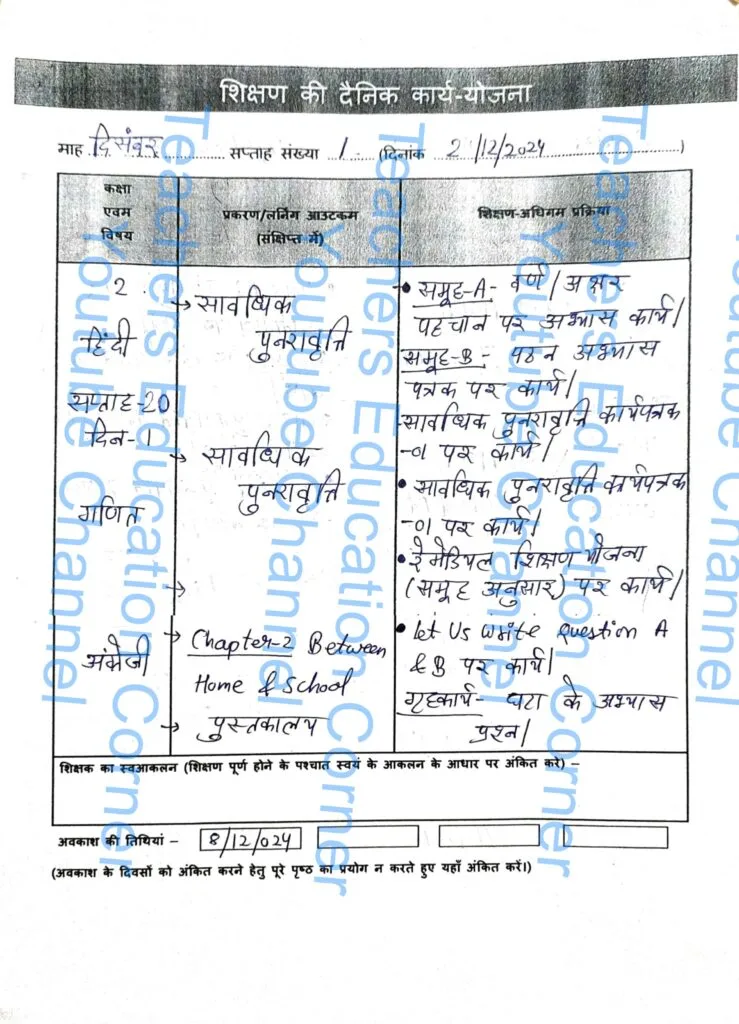 शिक्षण की दैनिक कार्य-योजना
माह दिसंबर सप्ताह संख्या 1 (दिनांक 2/12/2024)
कक्षा
एवम
विषय
प्रकरण/लर्निंग आउटकम
(संक्षिप्त में)
शिक्षण-अधिगम प्रक्रिया
2
हिंदी
सप्ताह-20
दिन-1
गणित
अंग्रेजी
→ सावधिक
पुनरावृत्ति
→ सावधिक
पुनरावृत्ति
→
→ Chapter-2 Between
Home & School
→ पुस्तकालय
• समूह-A- वर्ण/अक्षर
पहचान पर अभ्यास कार्य।
समूह-B- पठन अभ्यास
पत्रक पर कार्य।
-सावधिक पुनरावृत्ति कार्यपत्रक
-01 पर कार्य।
• सावधिक पुनरावृत्ति कार्यपत्रक
-01 पर कार्य।
• रेमेडियल शिक्षण योजना
(समूह अनुसार) पर कार्य।
• Let Us Write Question A
& B पर कार्य।
गृहकार्य- घटा के अभ्यास
प्रश्न।
शिक्षक का स्वआकलन (शिक्षण पूर्ण होने के पश्चात स्वयं के आकलन के आधार पर अंकित करे) –
अवकाश की तिथियां – 8/12/024
(अवकाश के दिवसों को अंकित करने हेतु पूरे पृष्ठ का प्रयोग न करते हुए यहाँ अंकित करें।)
Teachers Education Corner
Youtube Channel
Teachers Education Corner
Youtube Channel
Teachers Education Corner
Youtube Channel